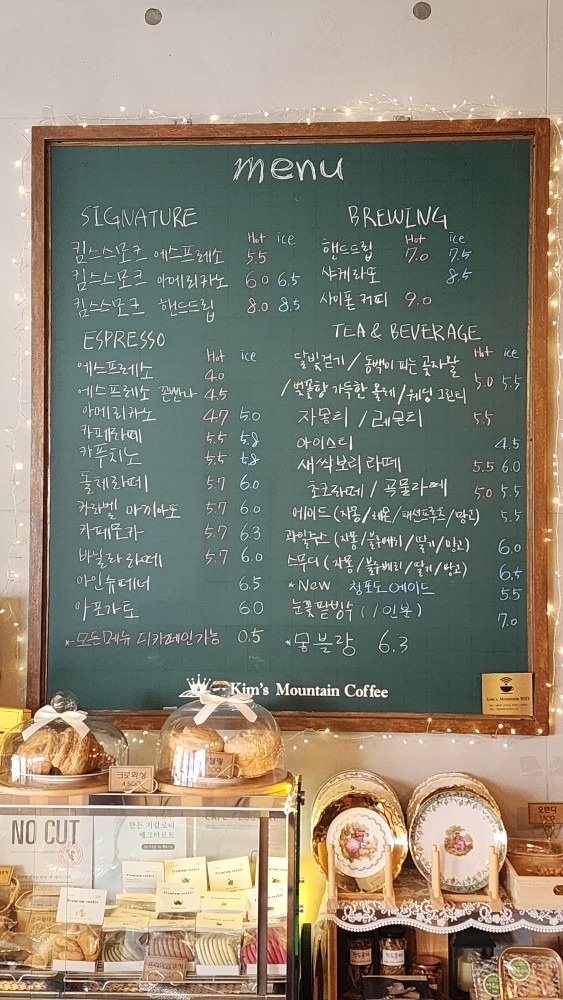 menu
SIGNATURE
Hot ice
킴스스모크 에스프레소 5.5
킴스스모크 아메리카노 6.0 6.5
킴스스모크 핸드드립 8.0 8.5
ESPRESSO
Hot ice
에스프레소 4.0
에스프레소 꼰빤나 4.5
아메리카노 4.7 5.0
카페라떼 5.5 5.8
카푸치노 5.5 5.8
돌체라떼 5.7 6.0
카라멜 마끼아또 5.7 6.0
카페모카 5.7 6.3
바닐라라떼 5.7 6.0
아인슈페너 6.5
아포가토 6.0
*모든메뉴 디카페인가능 0.5
BREWING
Hot ice
핸드드립 7.0 7.5
샤케라또 8.5
사이폰커피 9.0
TEA & BEVERAGE
Hot ice
달빛걷기 / 동백이 피는 곶자왈
/ 벚꽃향 가득한 올레 / 웨딩 그린티 5.0 5.5
자몽티 / 레몬티 5.5
아이스티 4.5
새싹보리라떼 5.5 6.0
초코라떼 / 곡물라떼 5.0 5.5
에이드 (자몽/레몬/패션프루츠/망고) 5.5
과일쥬스 (자몽/블루베리/딸기/망고) 6.0
스무디 (자몽/블루베리/딸기/망고) 6.5
*New 청포도에이드 5.5
눈꽃팥빙수 (1인용) 7.0
*몽블랑 6.3
Kim's Mountain Coffee
Kim's Mountain WIFI
크로와상
4,500
NO CUT
만든 저칼로리
에그타르트
Premium cookie
Premium cookie
Premium cookie